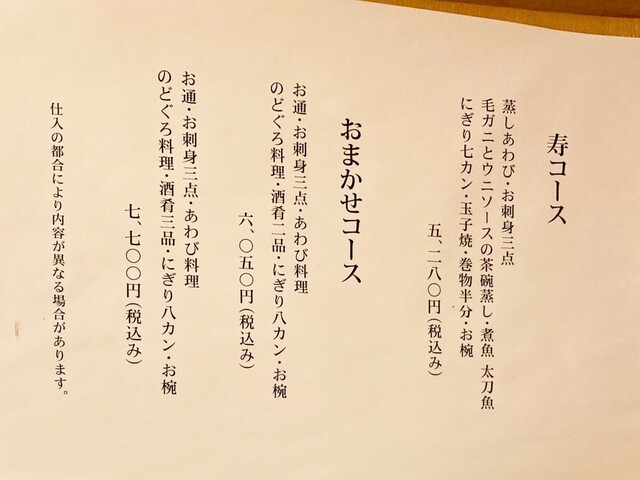 寿コース
蒸しあわび・お刺身三点
毛ガニとウニソースの茶碗蒸し・煮魚 太刀魚
にぎり七カン・玉子焼・巻物半分・お椀
五、二八〇円(税込み)
おまかせコース
お通・お刺身三点・あわび料理
のどぐろ料理・酒肴二品・にぎり八カン・お椀
六、〇五〇円(税込み)
お通・お刺身三点・あわび料理
のどぐろ料理・酒肴三品・にぎり八カン・お椀
七、七〇〇円(税込み)
仕入の都合により内容が異なる場合があります。